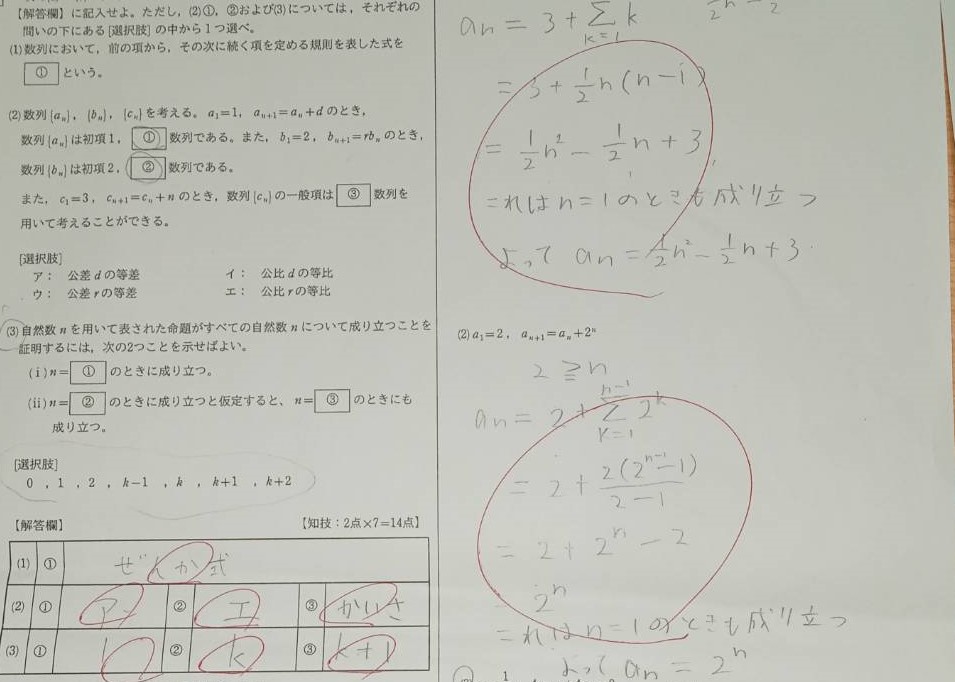 【解答欄】に記入せよ。ただし，(2)①，②および(3)については，それぞれの
問いの下にある[選択肢]の中から1つ選べ。
(1)数列において，前の項から，その次に続く項を定める規則を表した式を
①という。
(2)数列{aₙ}，{bₙ}，{cₙ}を考える。a₁=1，aₙ₊₁=aₙ+dのとき，
数列{aₙ}は初項1，①数列である。また，b₁=2，bₙ₊₁=rbₙのとき，
数列{bₙ}は初項2，②数列である。
また，c₁=3，cₙ₊₁=cₙ+nのとき，数列{cₙ}の一般項は③数列を
用いて考えることができる。
[選択肢]
ア： 公差dの等差 イ： 公比dの等比
ウ： 公差rの等差 エ： 公比rの等比
(3)自然数nを用いて表された命題がすべての自然数nについて成り立つことを
証明するには，次の2つことを示せばよい。
(i)n=①のときに成り立つ。
(ii)n=②のときに成り立つと仮定すると、n=③のときにも
成り立つ。
[選択肢]
0，1，2，k−1，k，k+1，k+2
【解答欄】 【知技：2点×7=14点】
(1) ① ぜんか式
(2) ① ア ② エ ③ かいさ
(3) ① 1 ② k ③ k+1
an = 3 + Σ k
k=1
= 3 + 1/2 n(n−1)
= 1/2 n² − 1/2 n + 3
これはn=1のときも成り立つ
よって an = 1/2 n² − 1/2 n + 3
(2)a₁=2，aₙ₊₁=aₙ+2ⁿ
2 ≧ n
an = 2 + Σ 2ᵏ
n−1
k=1
= 2 + 2(2ⁿ⁻¹−1)/2−1
= 2 + 2ⁿ − 2
2ⁿ
これはn=1のときも成り立つ
よって an = 2ⁿ